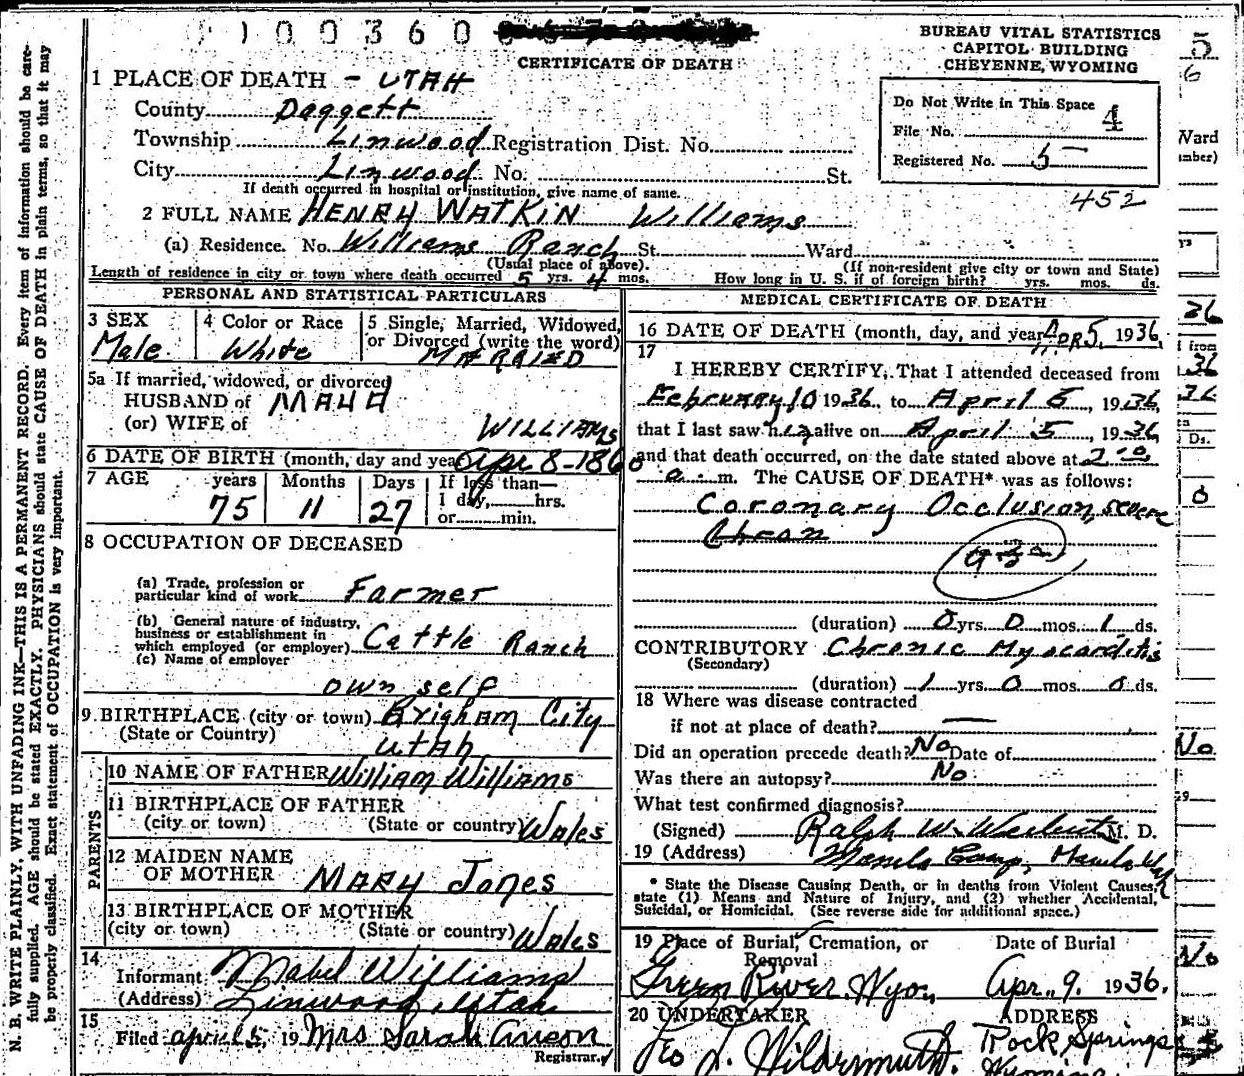 100360
BUREAU VITAL STATISTICS
CAPITOL BUILDING
CHEYENNE, WYOMING
CERTIFICATE OF DEATH
1 PLACE OF DEATH - UTAH
County Daggett
Township Linwood Registration Dist. No.
City Linwood No. St.
If death occurred in hospital or institution, give name of same.
Do Not Write in This Space 4
File No.
Registered No. 5
452
2 FULL NAME HENRY WATKIN Williams
(a) Residence. No. Williams Ranch St. Ward
(Usual place of above). (If non-resident give city or town and State)
Length of residence in city or town where death occurred 5 yrs. 4 mos. How long in U. S. if of foreign birth? yrs. mos. ds.
PERSONAL AND STATISTICAL PARTICULARS
3 SEX Male
4 Color or Race White
5 Single, Married, Widowed, or Divorced (write the word)
MARRIED
5a If married, widowed, or divorced
HUSBAND of
(or) WIFE of WILLIAMS
6 DATE OF BIRTH (month, day and year) Apr 8-1860
7 AGE years Months Days If less than—
75 11 27 1 day, hrs.
or min.
8 OCCUPATION OF DECEASED
(a) Trade, profession or
particular kind of work Farmer
(b) General nature of industry,
business or establishment in
which employed (or employer) Cattle Ranch
(c) Name of employer
own self
9 BIRTHPLACE (city or town) Brigham City
(State or Country) Utah
PARENTS
10 NAME OF FATHER William Williams
11 BIRTHPLACE OF FATHER
(city or town) (State or country) Wales
12 MAIDEN NAME
OF MOTHER MARY Jones
13 BIRTHPLACE OF MOTHER
(city or town) (State or country) Wales
14
Informant Mabel Williams
(Address) Linwood, Utah
15
Filed april 5, 19 Mrs Sarah
Registrar.
MEDICAL CERTIFICATE OF DEATH
16 DATE OF DEATH (month, day, and year) Apr 5, 1936
17
I HEREBY CERTIFY, That I attended deceased from
February 10 1936, to April 5, 1936,
that I last saw him alive on April 5, 1936
and that death occurred, on the date stated above at 2
a. m. The CAUSE OF DEATH* was as follows:
Coronary Occlusion, severe
Chron
(duration) 0 yrs. 0 mos. 1 ds.
CONTRIBUTORY Chronic Myocarditis
(Secondary)
(duration) 1 yrs. 0 mos. 0 ds.
18 Where was disease contracted
if not at place of death? —
Did an operation precede death? No Date of
Was there an autopsy? No
What test confirmed diagnosis?
(Signed) Ralph W. M. D.
19 (Address) Manila Camp, Manila
* State the Disease Causing Death, or in deaths from Violent Causes, state (1) Means and Nature of Injury, and (2) whether Accidental, Suicidal, or Homicidal. (See reverse side for additional space.)
19 Place of Burial, Cremation, or Removal Date of Burial
Green River, Wyo. Apr. 9, 1936.
20 UNDERTAKER ADDRESS
Geo L. Wildermuth. Rock Springs
Wyoming
N. B. WRITE PLAINLY, WITH UNFADING INK—THIS IS A PERMANENT RECORD. Every item of information should be carefully supplied. AGE should be stated EXACTLY. PHYSICIANS should state CAUSE OF DEATH in plain terms, so that it may be properly classified. Exact statement of OCCUPATION is very important.
5
6
Ward
mber)
36
from
36
36
Ds.
0
No
No